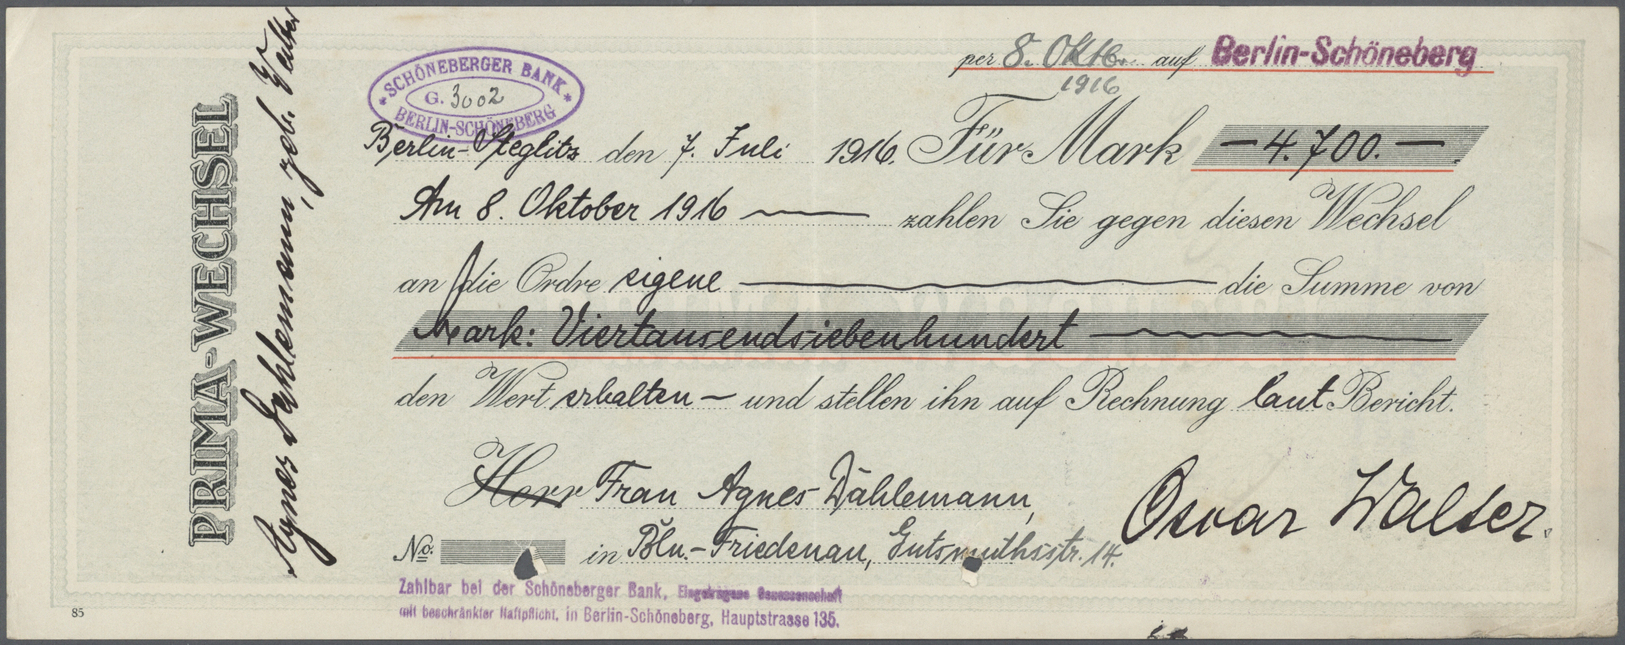 PRIMA-WECHSEL
Agnes Dahlemann, geb. Walter
SCHÖNEBERGER BANK
G. 3002
BERLIN-SCHÖNEBERG
per 8. Okt. auf Berlin-Schöneberg
1916
Berlin-Steglitz den 7. Juli 1916. Für Mark — 4.700. —
Am 8. Oktober 1916 zahlen Sie gegen diesen Wechsel
an die Ordre eigene die Summe von
Mark: Viertausendsiebenhundert
den Wert erhalten – und stellen ihn auf Rechnung laut Bericht.
Herr Frau Agnes Dahlemann,
Oscar Walter.
No. in Bln.-Friedenau, Gutsmuthsstr. 14.
Zahlbar bei der Schöneberger Bank, Eingetragene Genossenschaft
mit beschränkter Haftpflicht, in Berlin-Schöneberg, Hauptstrasse 135.
85